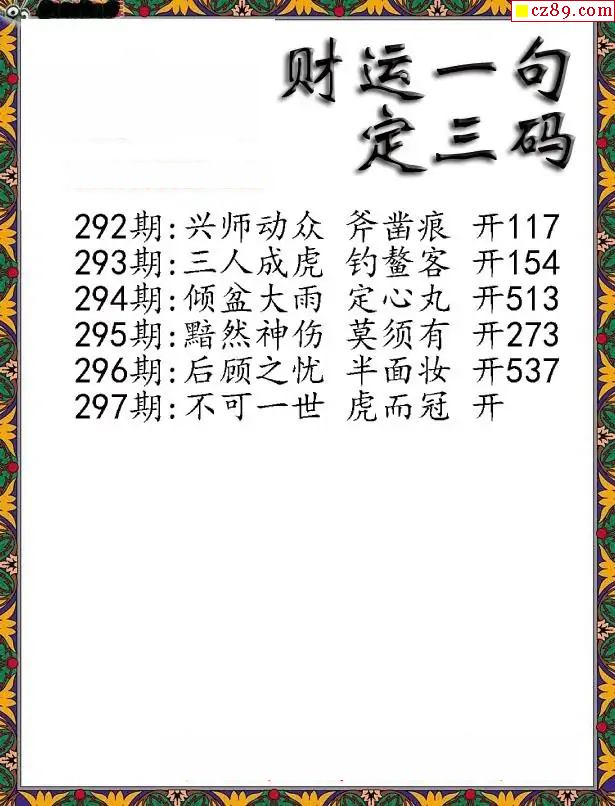 cz89.com
财运一句
定三码
292期:兴师动众 斧凿痕 开117
293期:三人成虎 钓鳌客 开154
294期:倾盆大雨 定心丸 开513
295期:黯然神伤 莫须有 开273
296期:后顾之忧 半面妆 开537
297期:不可一世 虎而冠 开